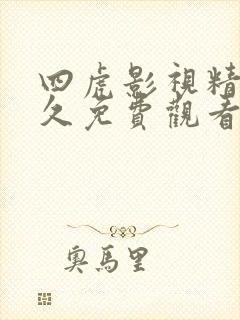 四虎影視精
久免費觀看
奧馬里